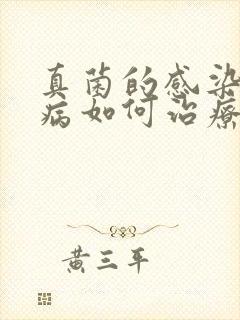 真菌的感染
病如何治疗
黄三平